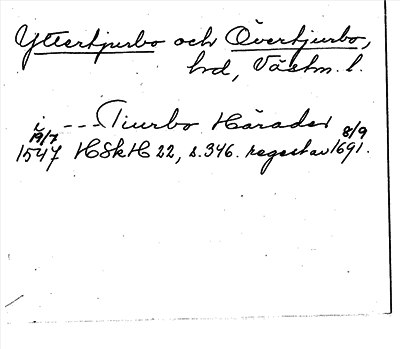 Yttertjurbo och Övertjurbo,
hd, Västm. l.
i --- Tiurbo Härader
19/7 8/9
1547 HSkH 22, s. 346. regest av 1691.